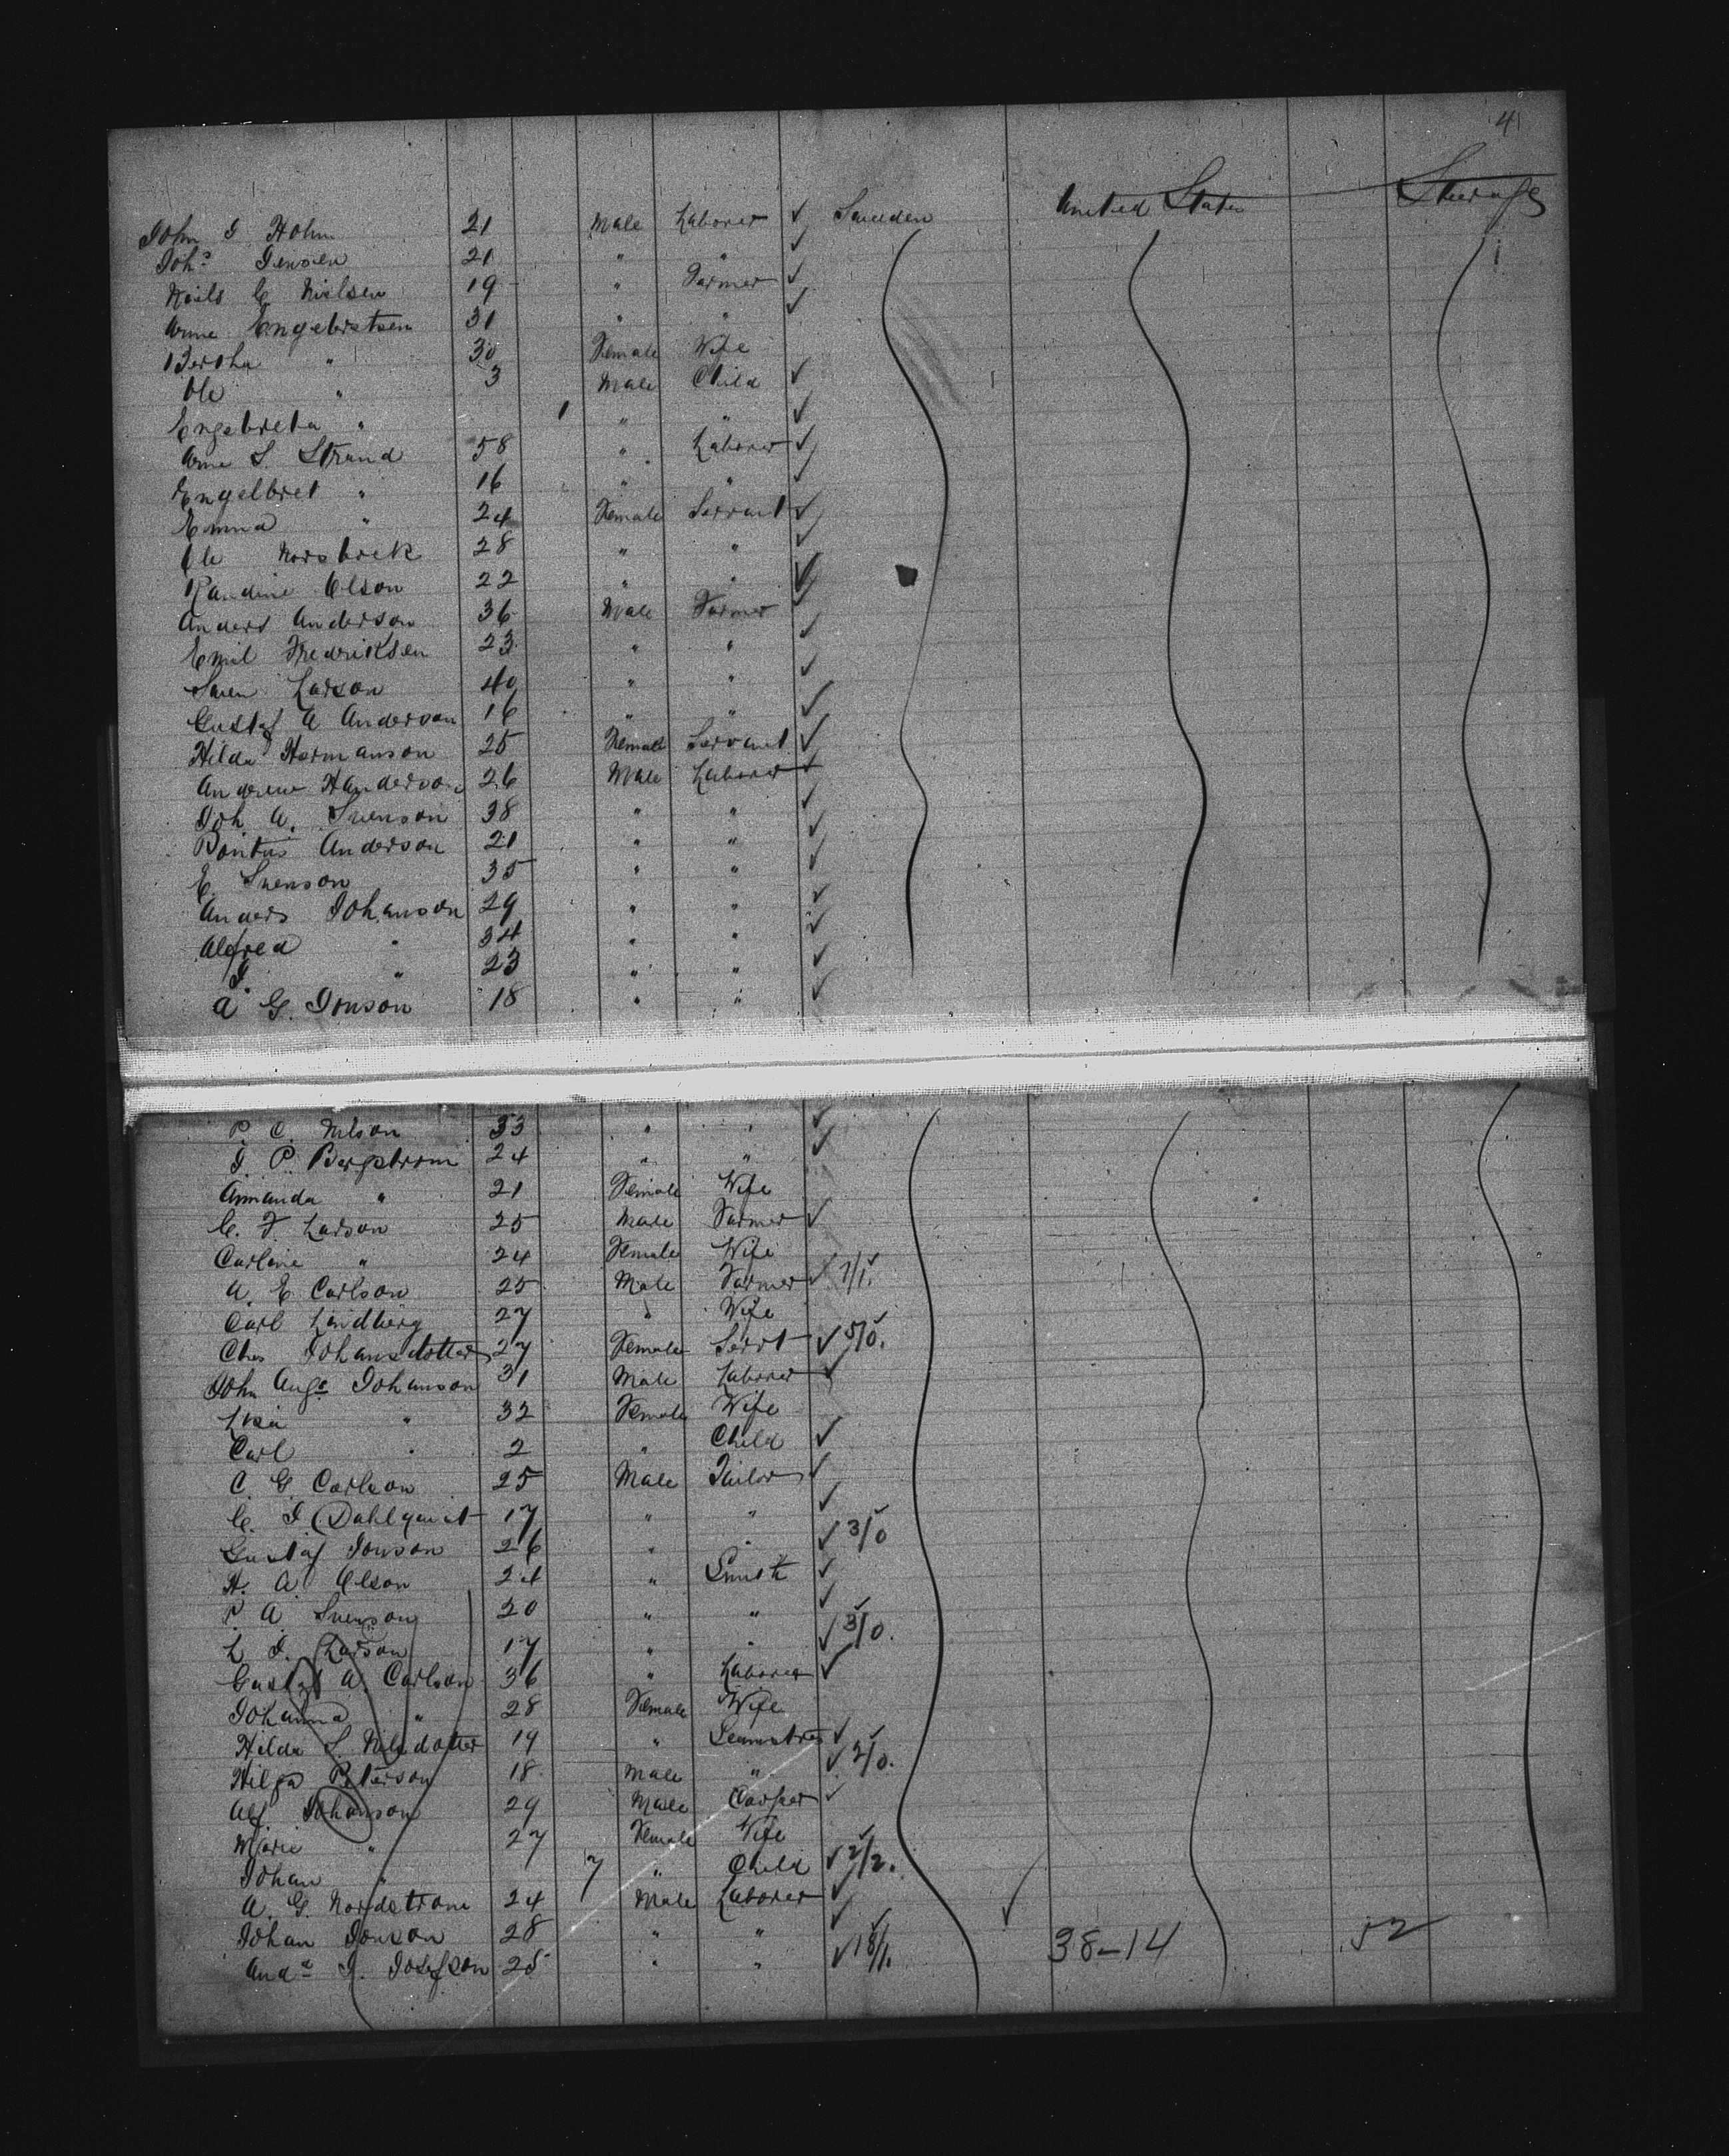 4
John I Holm 21 Male Laborer ✓ Sweden United States Steerage
Joh.s Jensen 21 " " ✓
Neils C Nielsen 19 " Farmer ✓
Arne Engebretsen 31 " " ✓
Bertha " 30 Female Wife
Ole " 3 Male Child ✓
Engebreta " 1 " " ✓
Arne S. Strand 58 " Laborer ✓
Engelbret " 16 " " ✓
Emma " 24 Female Servant ✓
Ole 28 " " ✓
Randine Olson 22 " " ✓
Anders Anderson 36 Male Farmer ✓
Emil Fredriksen 23 " " ✓
Swen Larson 40 " " ✓
Gustaf A Anderson 16 " " ✓
Hilda Hermanson 25 Female Servant ✓
Andrew Handerson 26 Male Laborer ✓
Joh A. Svenson 38 " " ✓
Pontus Anderson 21 " " ✓
E. Svenson 35 " " ✓
Anders Johanson 29 " " ✓
Alfred " 34 " " ✓
J. " 23 " " ✓
A G. Jonson 18 " " ✓
P. C. Nilson 33 " " ✓
J. P. Bergstrom 24 " " ✓
Amanda " 21 Female Wife
C. F. Larson 25 Male Farmer ✓
Carline " 24 Female Wife
A. E Carlson 25 Male Farmer ✓ 7/1.
Carl Lindberg 27 " Wife
Chs Johansdotter 27 Female Servt ✓ 5/0.
John Aug. Johanson 31 Male Laborer ✓
Lisa " 32 Female Wife
Carl " 2 " Child ✓
C. G. Carlson 25 Male Tailor ✓
C. J Dahlquist 17 " " ✓
Gustaf Jonson 26 " " ✓ 3/0
H. A Olson 24 " Smith ✓
P. A. Svenson 20 " " ✓
L J. Larson 17 " " ✓ 3/0.
Gustaf A. Carlson 36 " Laborer ✓
Johanna " 28 Female Wife
Hilda S. Nilsdotter 19 " Seamstres ✓
Hilga Peterson 18 Male " ✓ 2/0.
Alf. Johanson 29 Male Carper ✓
Marie " 27 Female Wife
Johan " 7 " Child ✓ 2/2.
A. G. Nordstrom 24 Male Laborer ✓
Johan Jonson 28 " " ✓
And.s J. Josefson 25 " " ✓ 18/1. 38-14 52